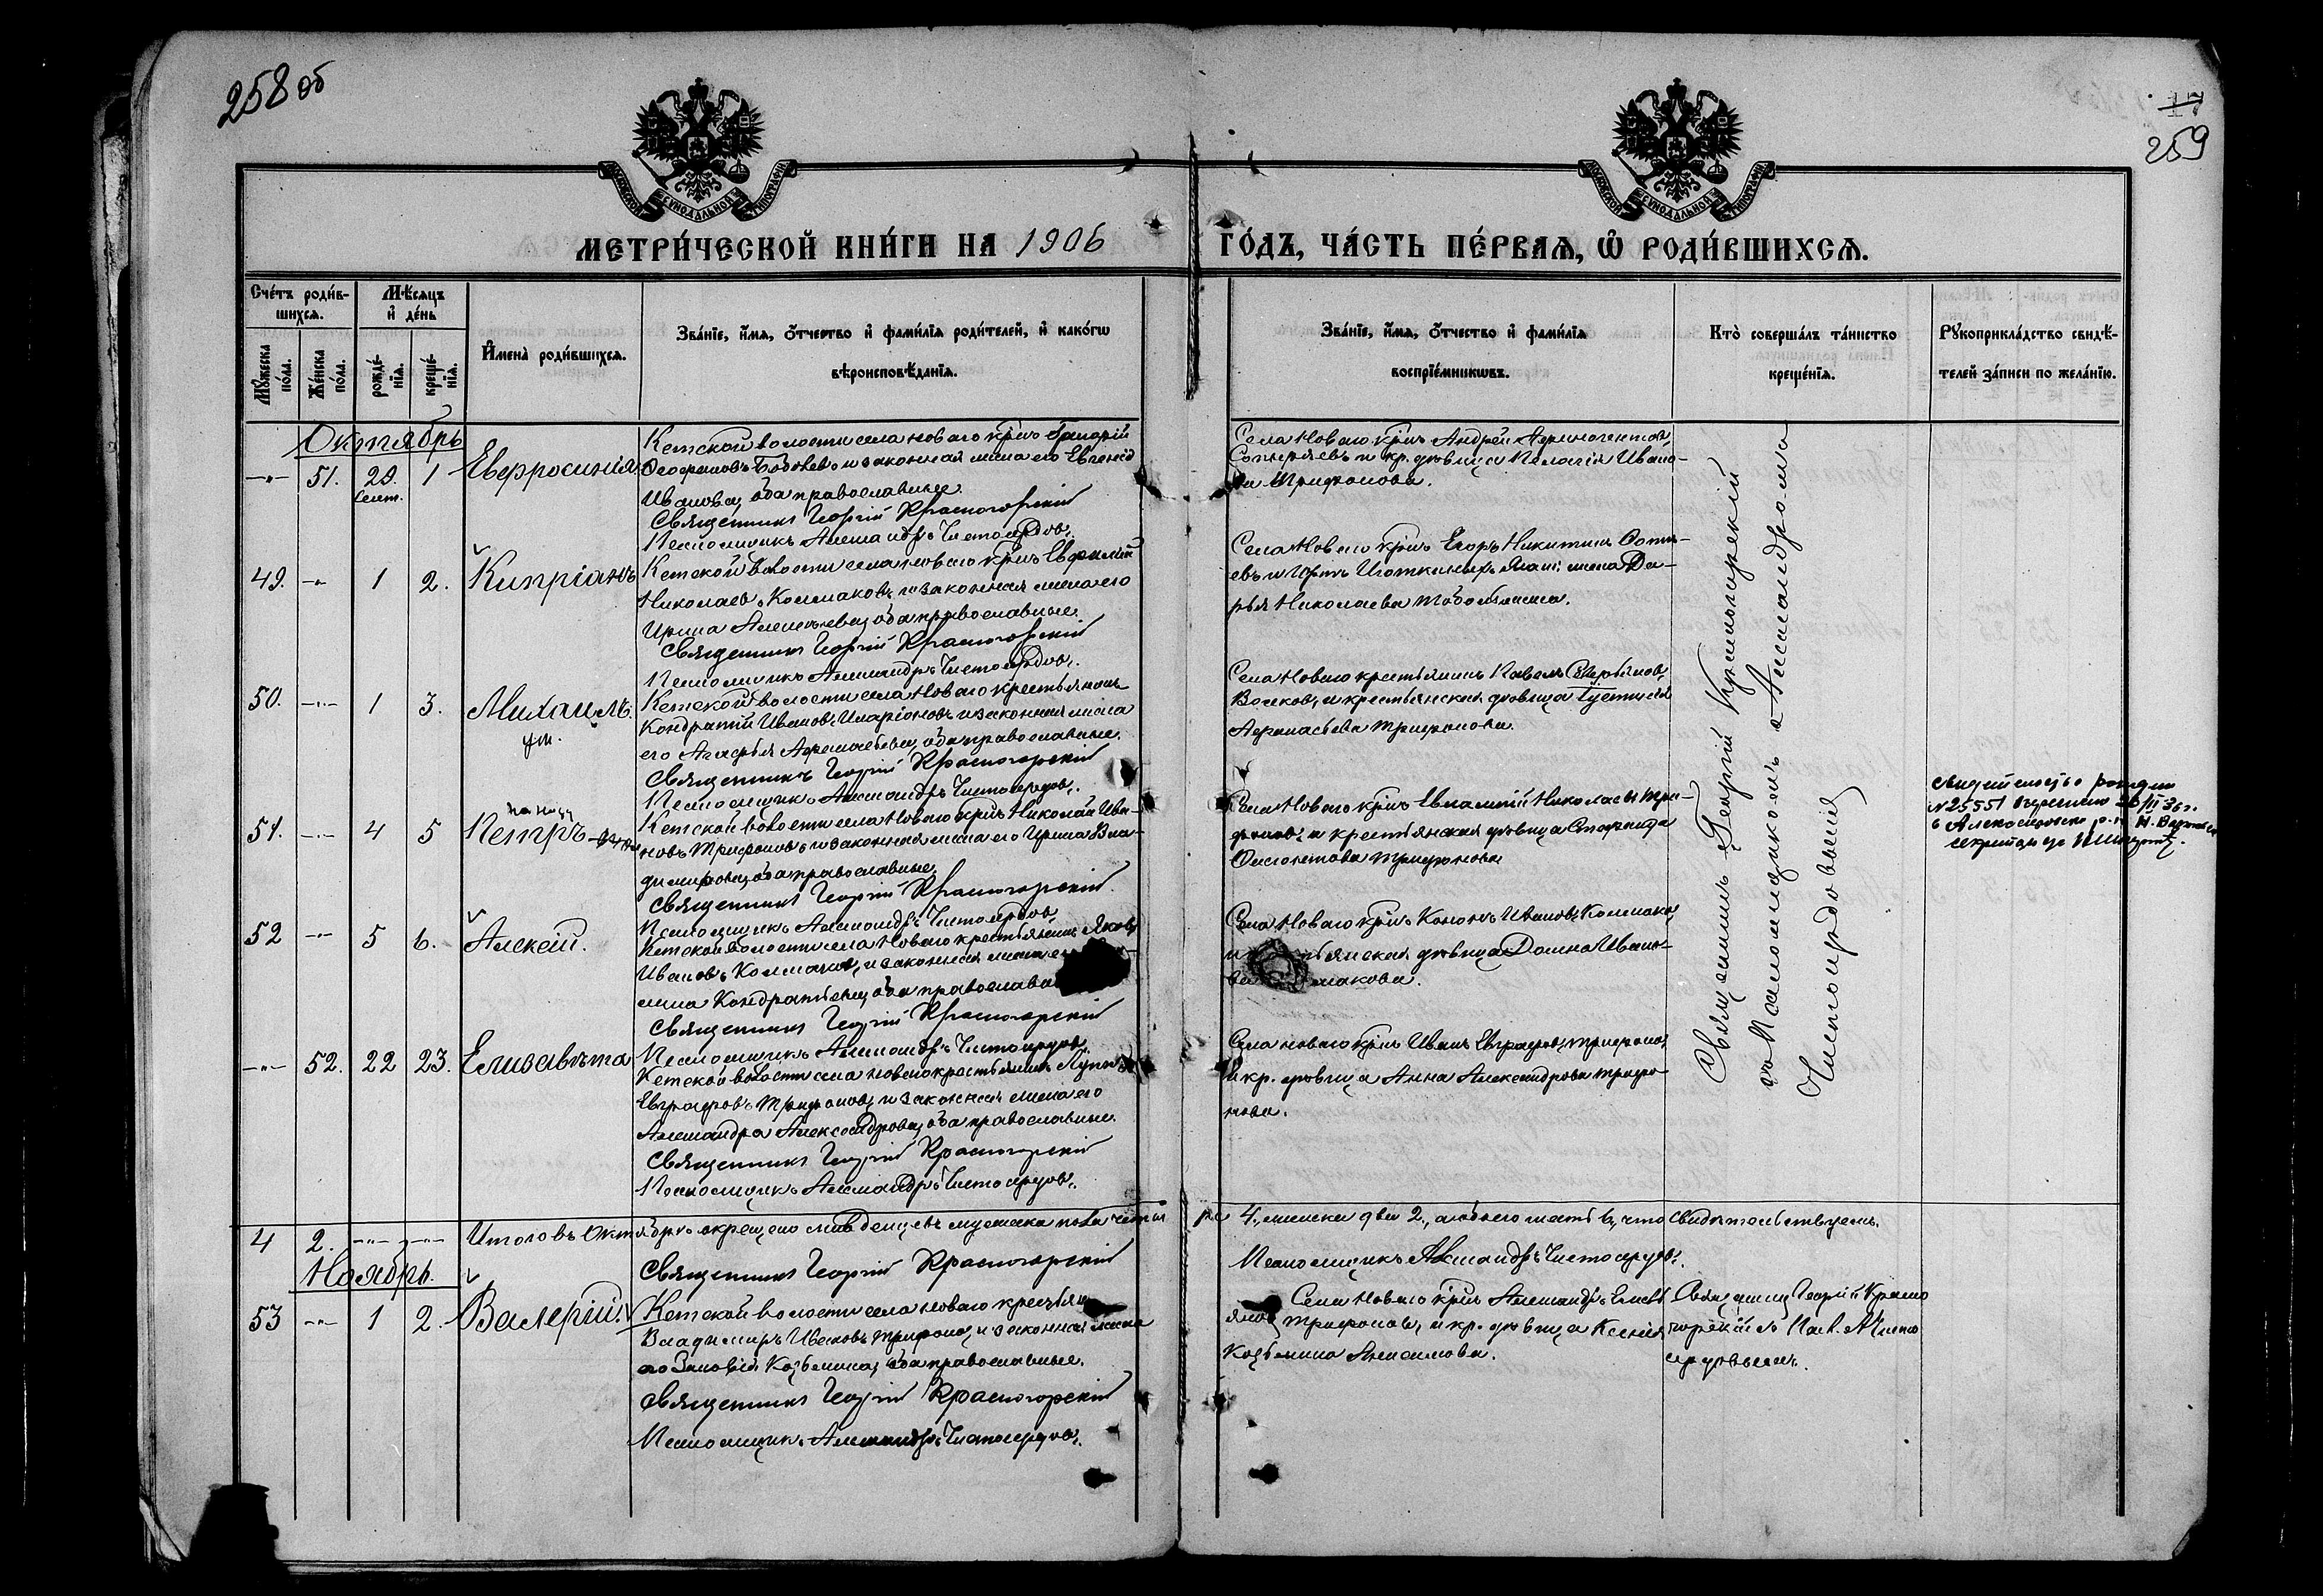 258 об
17
259
МОСКОВСКОЙ СУНОДАЛЬНОЙ ТИПОГРАФІИ
МОСКОВСКОЙ СУНОДАЛЬНОЙ ТИПОГРАФІИ
МЕТРИ́ЧЕСКОЙ КНИ́ГИ НА 1906 ГО́ДЪ, ЧА́СТЬ ПЕ́РВАЯ, Ѡ РОДИ́ВШИХСЯ.
Сче́тъ роди́в-
шихся.
Мѣ́сяцъ
и҆ де́нь
Мꙋжеска по́ла.
Же́нска по́ла.
рожде́-
нїѧ.
креще́-
нїѧ.
И҆мена̀ роди́вшихся.
Зва́нїе, и҆́мѧ, ѻ҆́тчество и҆ фами́лїѧ роди́телей, и҆ како́гѡ
вѣроисповѣ́данїѧ.
Зва́нїе, и҆́мѧ, ѻ҆́тчество и҆ фами́лїѧ
воспрїе́мникѡвъ.
Кто̀ соверша́лъ та́инство
креще́нїѧ.
Рꙋкоприкла́дство свидѣ́-
телей за́писи по жела́нїю.
Октябрь
51. 29. Сент. 1 Евфросинія
Кетской волости села Новаго крнъ Григорій
Ѳеофановъ и законная жена его Евгенія
Иванова, оба православные.
Священникъ Георгій Красногорскій
Псаломщикъ Александръ Чистосердовъ.
Села Новаго крнъ Андрей
и кр. дѣвица Пелагія Ивано-
ва Трифонова.
49. 1 2. Кипріанъ
Кетской волости села Новаго крнъ Евфимій
Николаевъ Колмаковъ и законная жена его
Ирина Алексѣева, оба православные.
Священникъ Георгій Красногорскій
Псаломщикъ Александръ Чистосердовъ.
Села Новаго крнъ Егоръ Никитинъ
жена Да-
рья Николаева
50. 1 3. Михаилъ.
ум.
Кетской волости села Новаго крестьянинъ
Кондратій Ивановъ Иларіоновъ и законная жена
его Агафья Афанасьева, оба православные.
Священникъ Георгій Красногорскій
Псаломщикъ Александръ Чистосердовъ.
Села Новаго крестьянинъ Павелъ
Волковъ, и крестьянская дѣвица Іустинія
Афанасьева Трифонова.
51. 4 5 Петръ
Кетской волости села Новаго крнъ Николай Ива-
новъ Трифоновъ и законная жена его Ирина Вла-
димірова, оба православные.
Священникъ Георгій Красногорскій
Псаломщикъ Александръ Чистосердовъ.
Села Новаго крнъ Евлампій Николаевъ Три-
фоновъ, и крестьянская дѣвица
Трифонова
Свидетельство
№ 25551
52 5 6. Алексій.
Кетской волости села Новаго крестьянинъ Яковъ
Ивановъ Колмаковъ, и законная жена
Кондратьева, оба
Священникъ Георгій Красногорскій
Псаломщикъ Александръ Чистосердовъ.
Села Новаго крнъ Кононъ Ивановъ Колмаковъ,
дѣвица Домна Ивано-
ва
52. 22 23. Елизавета
Кетской волости села Новаго крестьянинъ
Евграфовъ Трифоновъ, и законная жена его
Александра Александрова, оба православные.
Священникъ Георгій Красногорскій
Псаломщикъ Александръ Чистосердовъ.
Села Новаго крнъ Иванъ Евграфовъ Трифоновъ,
и кр. дѣвица Анна Александрова Трифо-
нова.
Священникъ Георгій Красногорскій
съ Псаломщикомъ Александромъ
Чистосердовымъ
4 2. Итого въ Октябрѣ окрещено младенцевъ мужеска пола четыре 4., женска два 2., а обоего шесть 6, что свидѣтельствуемъ.
Священникъ Георгій Красногорскій
Псаломщикъ Александръ Чистосердовъ.
Ноябрь.
53 1 2. Валерій.
Кетской волости села Новаго
Владиміръ Ивановъ Трифоновъ, и законная жена
его Зиновія Козьмина, оба православные.
Священникъ Георгій Красногорскій
Псаломщикъ Александръ Чистосердовъ.
Села Новаго крнъ Александръ
Трифоновъ, и кр. дѣвица Ксенія
Козьмина Анисимова.
Священникъ Георгій Красно-
горскій съ Псал. А Чисто-
сердовымъ.